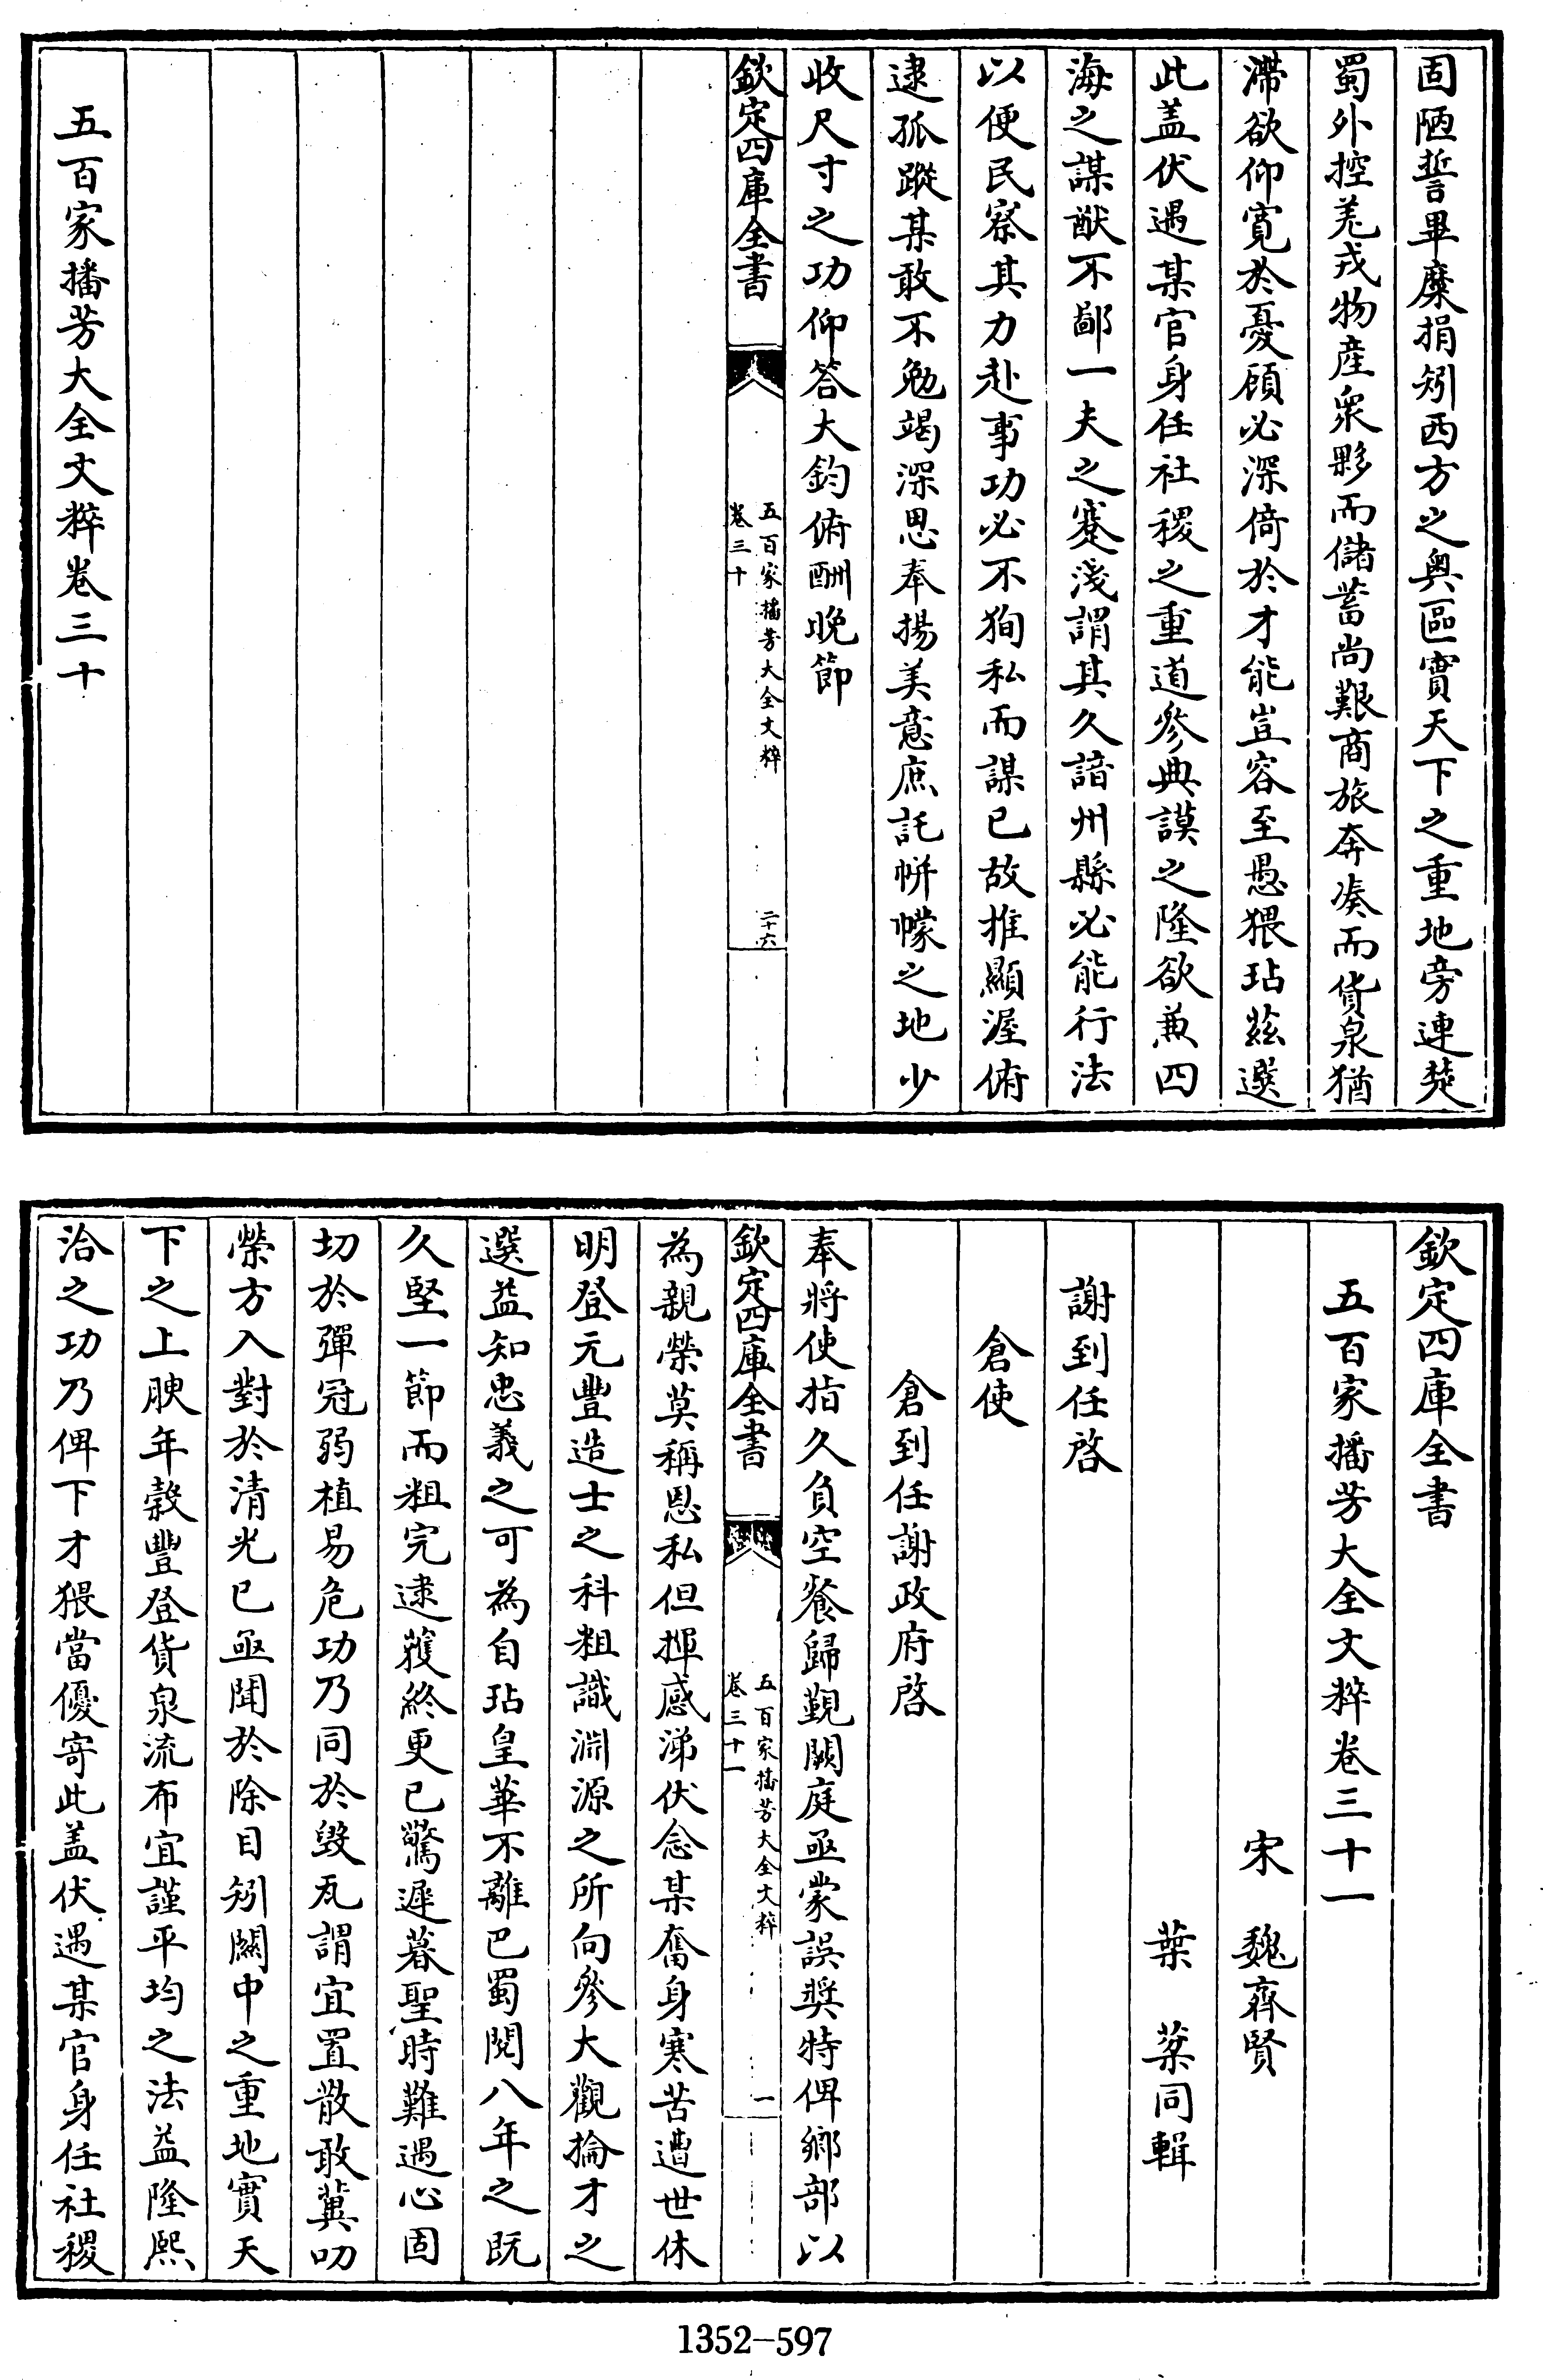 固陋誓畢糜捐矧西方之奥區實天下之重地旁連楚
蜀外控羌戎物産衆夥而儲蓄尚艱商旅奔凑而貨泉猶
滯欲仰寛於憂顧必深倚於才能豈容至愚猥玷兹選
此盖伏遇某官身任社稷之重道參典謨之隆欲兼四
海之謀猷不鄙一夫之蹇淺謂其久諳州縣必能行法
以便民察其力赴事功必不狥私而謀已故推顯渥俯
逮孤蹤某敢不勉竭深思奉揚美意庶託帡幪之地少
收尺寸之功仰答大鈞俯酬晚節
欽定四庫全書
五百家播芳大全文粹
卷三十
二十六
五百家播芳大全文粹卷三十
欽定四庫全書
五百家播芳大全文粹卷三十一
宋 魏齊賢
葉 棻同輯
謝到任啓
倉使
倉到任謝政府啓
奉將使指久負空餐歸覲闕庭亟蒙誤奬特俾鄉部以
欽定四庫全書
五百家播芳大全文粹
卷三十一
一
為親榮莫稱恩私但揮感涕伏念某奮身寒苦遭世休
明登元豐造士之科粗識淵源之所向參大觀掄才之
選益知忠義之可為自玷皇華不離巴蜀閲八年之既
久堅一節而粗完逮獲終更已驚遲暮聖時難遇心固
切於彈冠弱植易危功乃同於毁瓦謂宜置散敢冀叨
榮方入對於清光已亟聞於除目矧關中之重地實天
下之上腴年榖豐登貨泉流布宜謹平均之法益隆熙
洽之功乃俾下才猥當優寄此盖伏遇某官身任社稷
1352-597